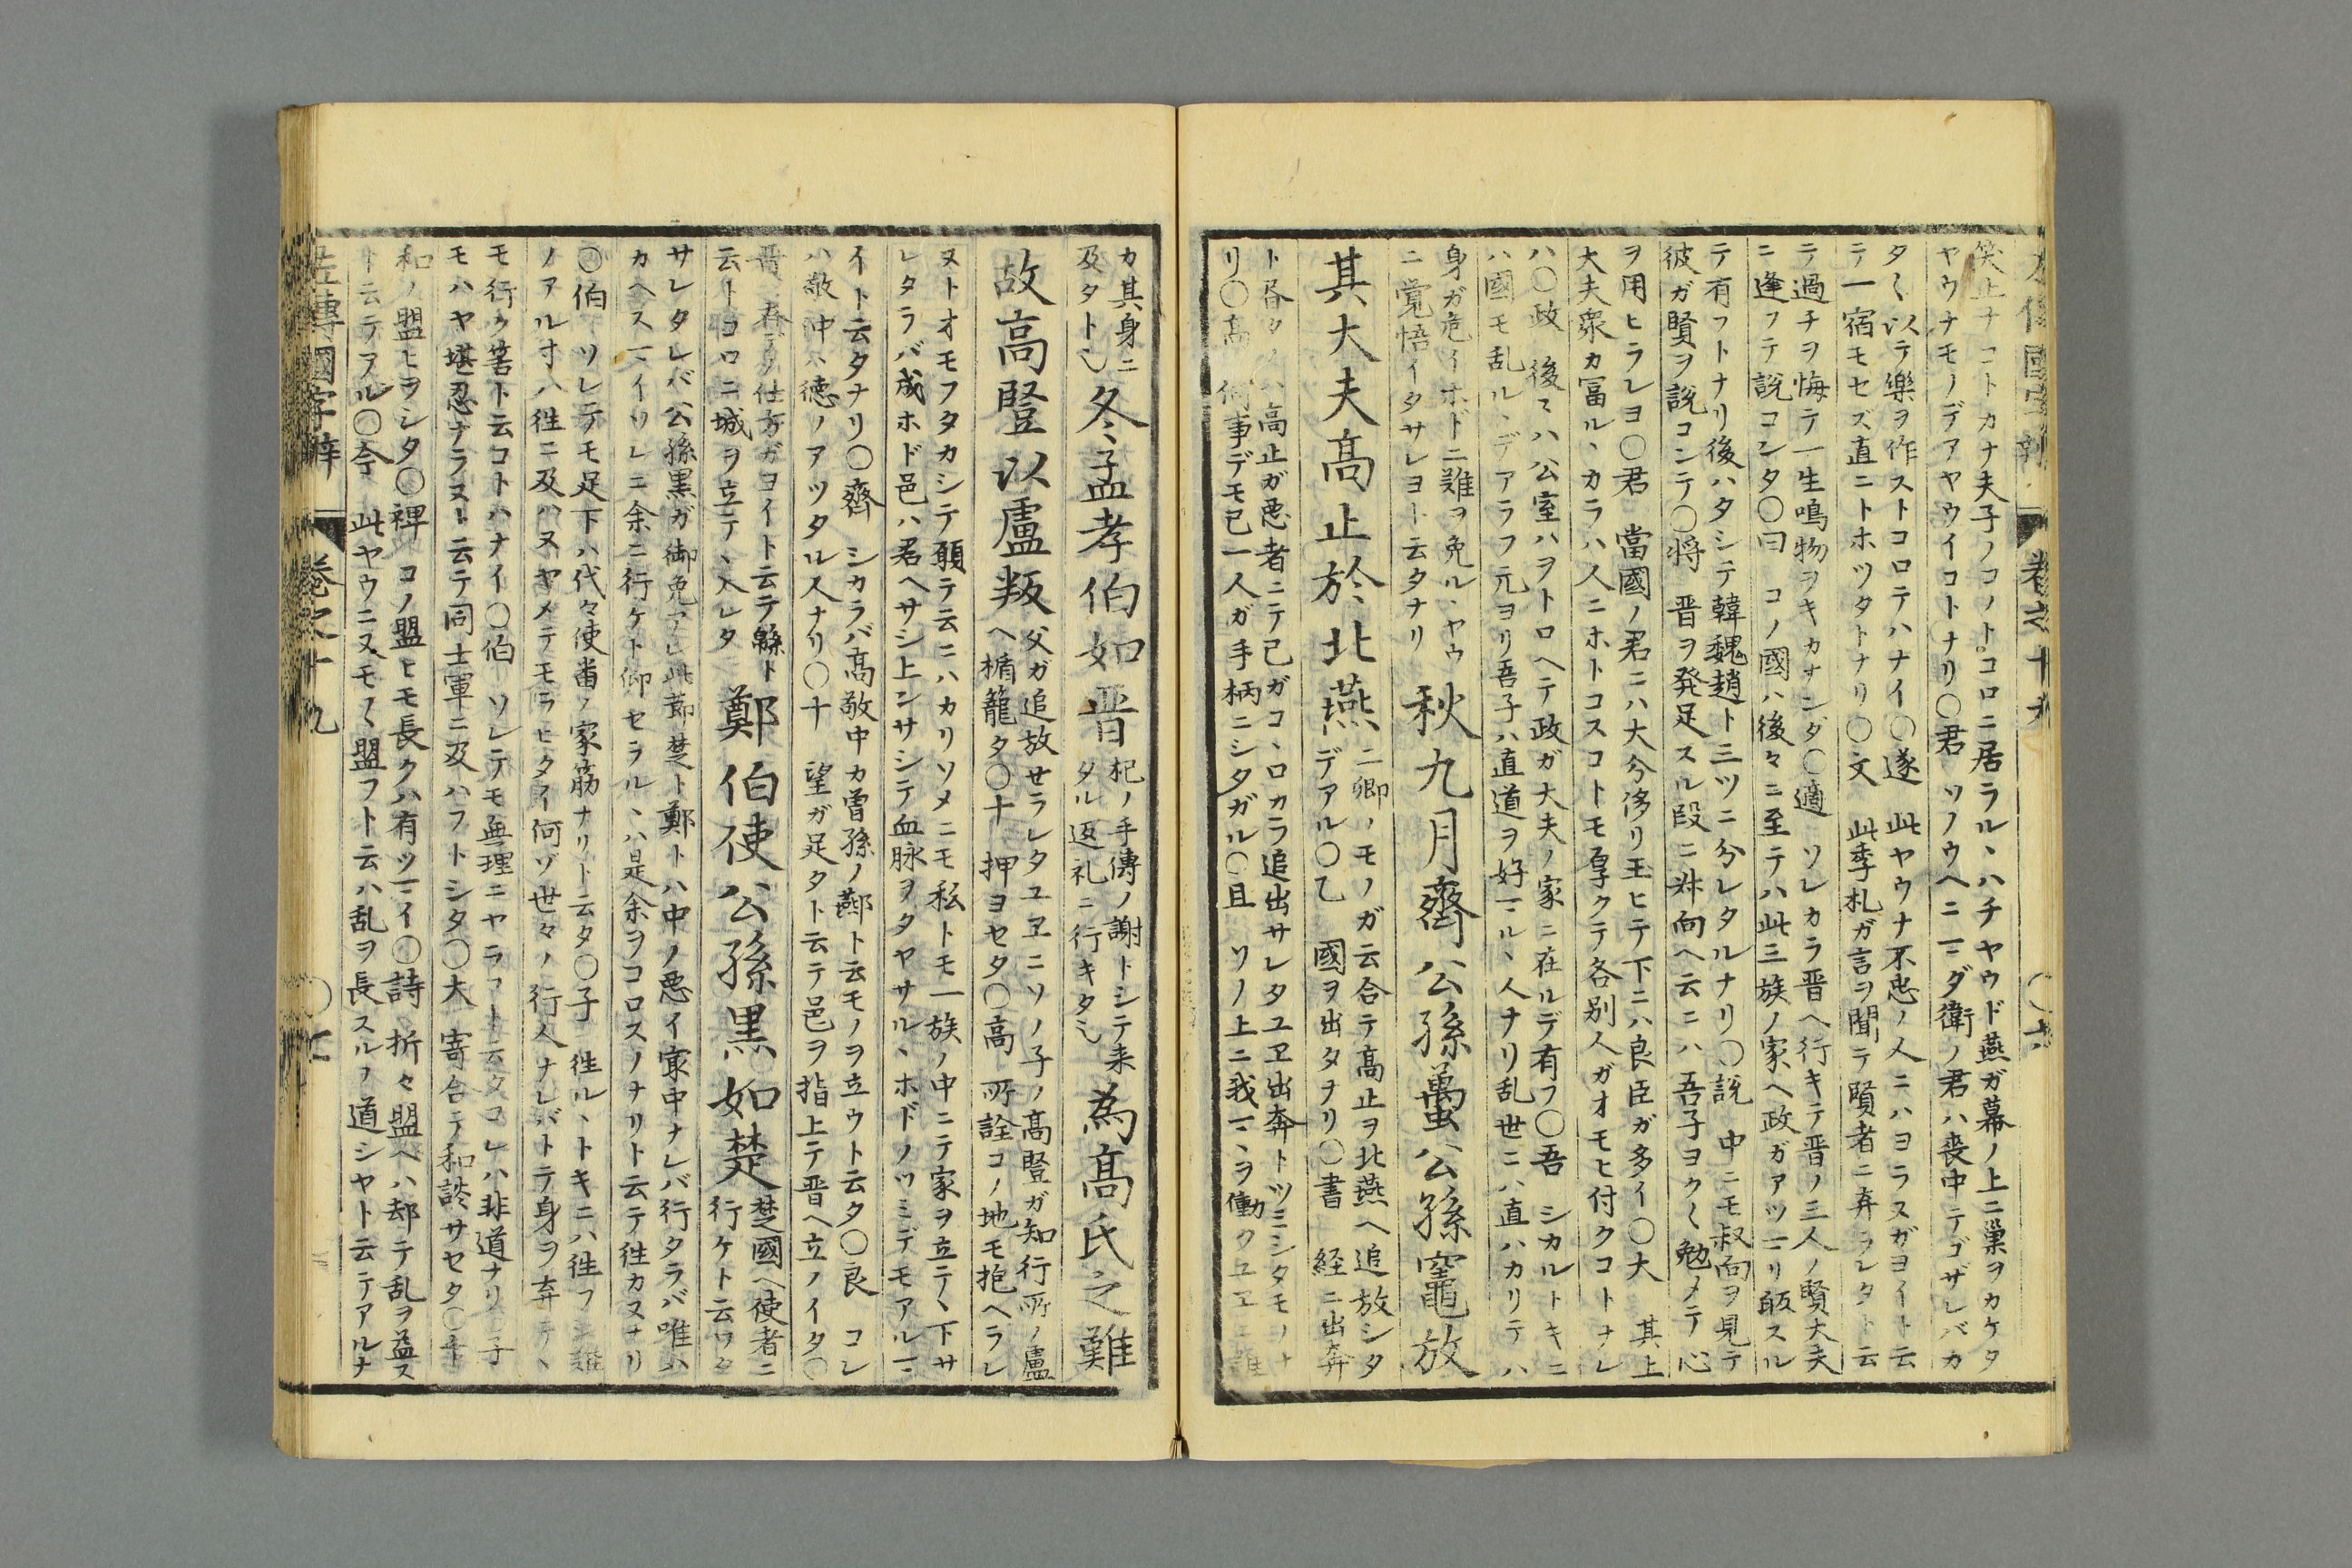 笑止ナコトカナ夫子ノコノトコロニ居ラルヽハチヤウド燕ガ幕ノ上ニ巣ヲカケタ
ヤウナモノデアヤウイコトナリ〇君 ソノウヘニマダ衛ノ君ハ喪中テゴザレバカ
タ〱以テ樂ヲ作ストコロテハナイ〇遂 此ヤウナ不忠ノ人ニハヨラヌガヨイト云
テ一宿モセズ直ニトホツタトナリ〇文 此季札ガ言ヲ聞テ賢者ニ弃ラレタト云
テ過チヲ悔テ一生鳴物ヲキカナンダ〇適 ソレカラ晋ヘ行キテ晋ノ三人ノ賢大夫
ニ逢フテ説コンタ〇曰 コノ國ハ後々ニ至テハ此三族ノ家ヘ政ガアツマリ皈スル
テ有フトナリ後ハタシテ韓魏趙ト三ツニ分レタルナリ〇説 中ニモ叔向ヲ見テ
彼ガ賢ヲ説コンテ〇将 晋ヲ発足スル段ニ叔向ヘ云ニハ吾子ヨク〱勉メテ心
ヲ用ヒラレヨ〇君 當國ノ君ニハ大分侈リ玉ヒテ下ニハ良臣ガ多イ〇大 其上
大夫衆カ冨ルヽカラハ人ニホトコスコトモ厚クテ各別人ガオモヒ付クコトナレ
ハ〇政 後々ハ公室ハヲトロヘテ政ガ大夫ノ家ニ在ルデ有フ〇吾 シカルトキニ
ハ國モ乱ルヽデアラフ元ヨリ吾子ハ直道ヲ好マルヽ人ナリ乱世ニハ直ハカリテハ
身ガ危イホドニ難ヲ免ルヽヤウ
ニ覚悟イタサレヨト云タナリ
秋九月齊公孫蠆公孫竈放
其大夫高止於北燕
二卿ノモノガ云合テ高止ヲ北燕ヘ追放シタ
デアル〇乙 國ヲ出タナリ〇書 経ニ出奔
ト昏タノハ高止ガ悪者ニテ己ガコヽロカラ追出サレタユヱ出奔トツミシタモノナ
リ〇高 何事デモ己一人ガ手柄ニシタガル〇且 ソノ上ニ我マヽヲ働クユヱニ難
カ其身ニ
及タト也
冬孟孝伯如晋
杞ノ手傳ノ謝トシテ来
タル返礼ニ行キタ也
為高氏之難
故高豎以盧叛
父ガ追放セラレタユヱニソノ子ノ高豎ガ知行所ノ盧
ヘ楯籠タ〇十 押ヨセタ〇高 所詮コノ地モ抱ヘラレ
ヌトオモフタカシテ願テ云ニハカリソメニモ私トモ一族ノ中ニテ家ヲ立テヽ下サ
レタラバ成ホド邑ハ君ヘサシ上ンサシテ血脉ヲタヤサルヽホドノツミデモアルマ
イト云タナリ〇齊 シカラバ高敬中カ曽孫ノ酀ト云モノヲ立ウト云タ〇良 コレ
ハ敬仲ハ徳ノアツタル人ナリ〇十 望ガ足タト云テ邑ヲ指上テ晋ヘ立ノイタ〇
晋 奔テノ仕方ガヨイト云テ緜ト
云トコロニ城ヲ立テヽ入レタ
鄭伯使公孫黒如楚
楚國ヘ使者ニ
行ケト云ワタ
サレタレバ公孫黒ガ御免アレ此節楚ト鄭トハ中ノ悪イ㝡中ナレバ行タラバ唯ハ
カヘスマイソレニ余ニ行ケト仰セラルヽハ是余ヲコロスノナリト云テ徃カヌナリ
〇伯 ソレテモ足下ハ代々使番ノ家筋ナリト云タ〇子 徃ルヽトキニハ徃フシ難
ノアル寸ハ徃ニ及ハヌヤメテモラヒタイ何ゾ世々ノ行人ナレバトテ身ヲ弃テヽ
モ行ク筈ト云コトハナイ〇伯 ソレテモ無理ニヤラフト云タコレハ非道ナリ〇子
モハヤ堪忍ナラヌト云テ同士軍ニ及ハフトシタ〇大 寄合テ和談サセタ〇
和ノ盟ヒヲシタ〇裨 コノ盟ヒモ長クハ有ツマイ〇詩 折々盟ヘハ却テ乱ヲ益ス
ト云テアル〇今 此ヤウニヌモ〱盟フト云ハ乱ヲ長スルノ道シヤト云テアルナ
左傳國字辯 巻之十九